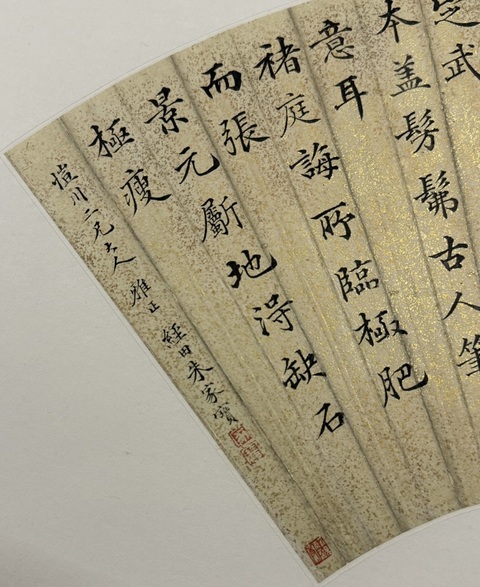 定武
本盖髣髴古人筆
意耳
褚庭誨所臨極肥
而張
景元斸地得缺石
極瘦
愷川二兄大人雅正經田朱家寶